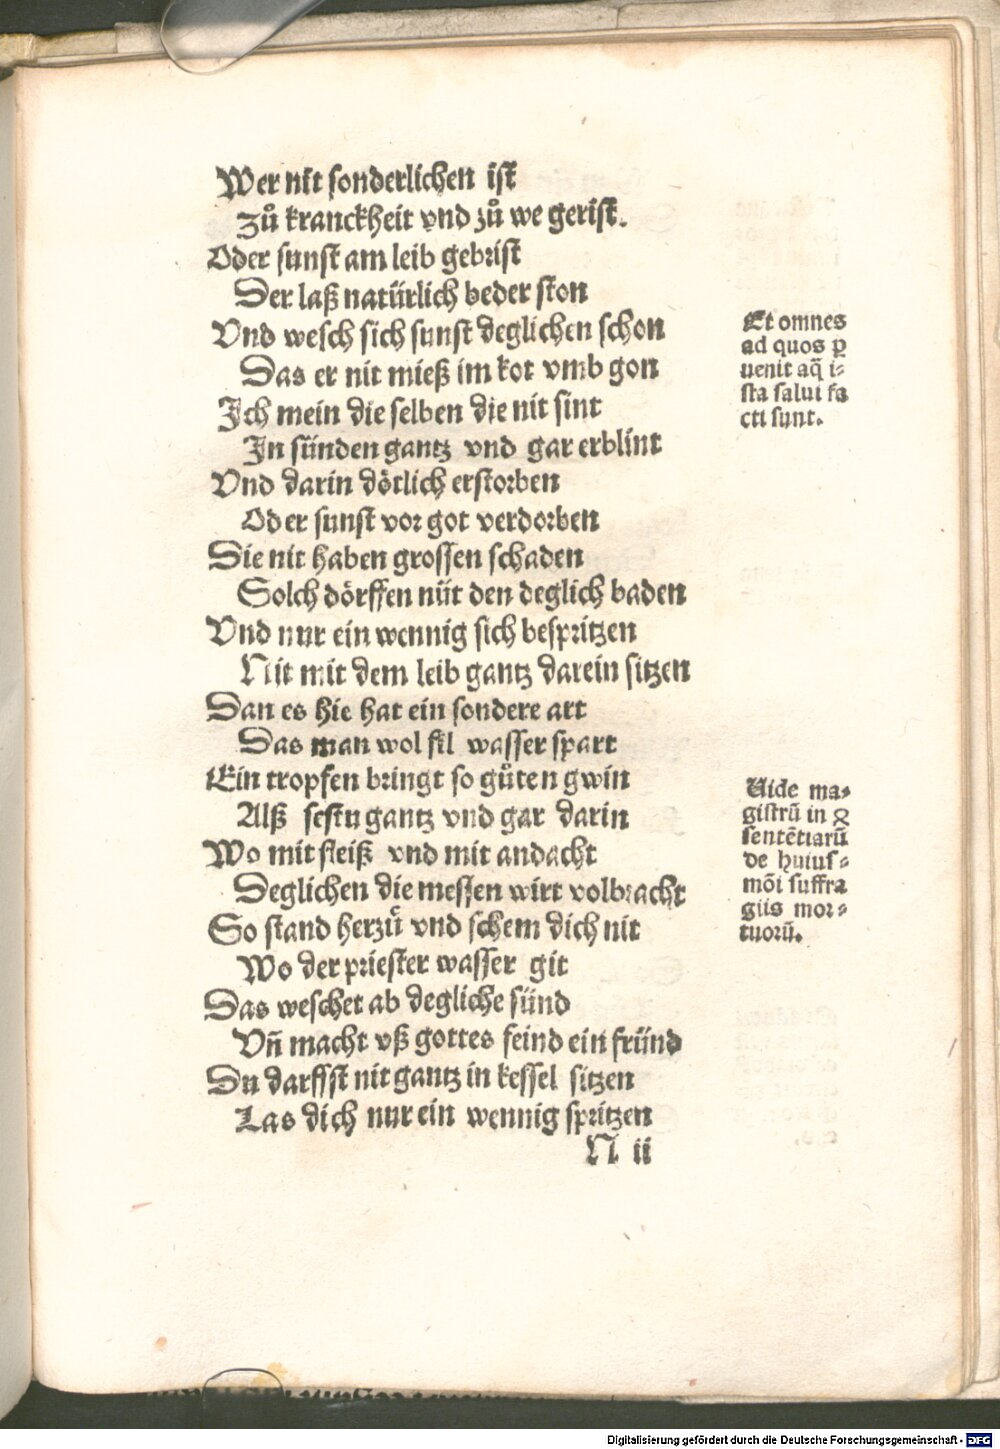 Wer nit sonderlichen ist
Zů kranckheit vnd zů we gerist.
Oder sunst am leib gebrist
Der laß natürlich beder ston
Vnd wesch sich sunst deglichen schon
Das er nit mieß im kot vmb gon
Ich mein die selben die nit sint
In sünden gantz vnd gar erblint
Vnd darin dötlich erstorben
Oder sunst vor got verdorben
Die nit haben grossen schaden
Solch dörffen nüt den deglich baden
Vnd nur ein wennig sich bespritzen
Nit mit dem leib gantz darein sitzen
Dan es hie hat ein sondere art
Das man wol fil wasser spart
Ein tropfen bringt so gůten gwin
Alß sestu gantz vnd gar darin
Wo mit fleiß vnd mit andacht
Deglichen die messen wirt volbracht
So stand herzů vnd schem dich nit
Wo der priester wasser git
Das weschet ab degliche sünd
Vñ macht vß gottes feind ein fründ
Du darffst nit gantz in kessel sitzen
Las dich nur ein wennig spritzen
N ii
Et omnes
ad quos ꝑ
uenit aq̃ i⸗
sta salui fa
cti sunt.
Uide ma⸗
gistrũ in 4
sentẽtiarũ
de huius⸗
mõi suffra
giis mor⸗
tuorũ.
Digitalisierung gefördert durch die Deutsche Forschungsgemeinschaft - DFG